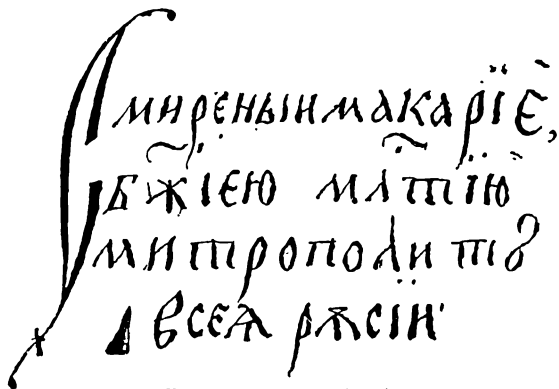 Смирєныи макарїє,
бж҃їєю мл҃тїю
митрополитъ
всеѧ рѫсїи